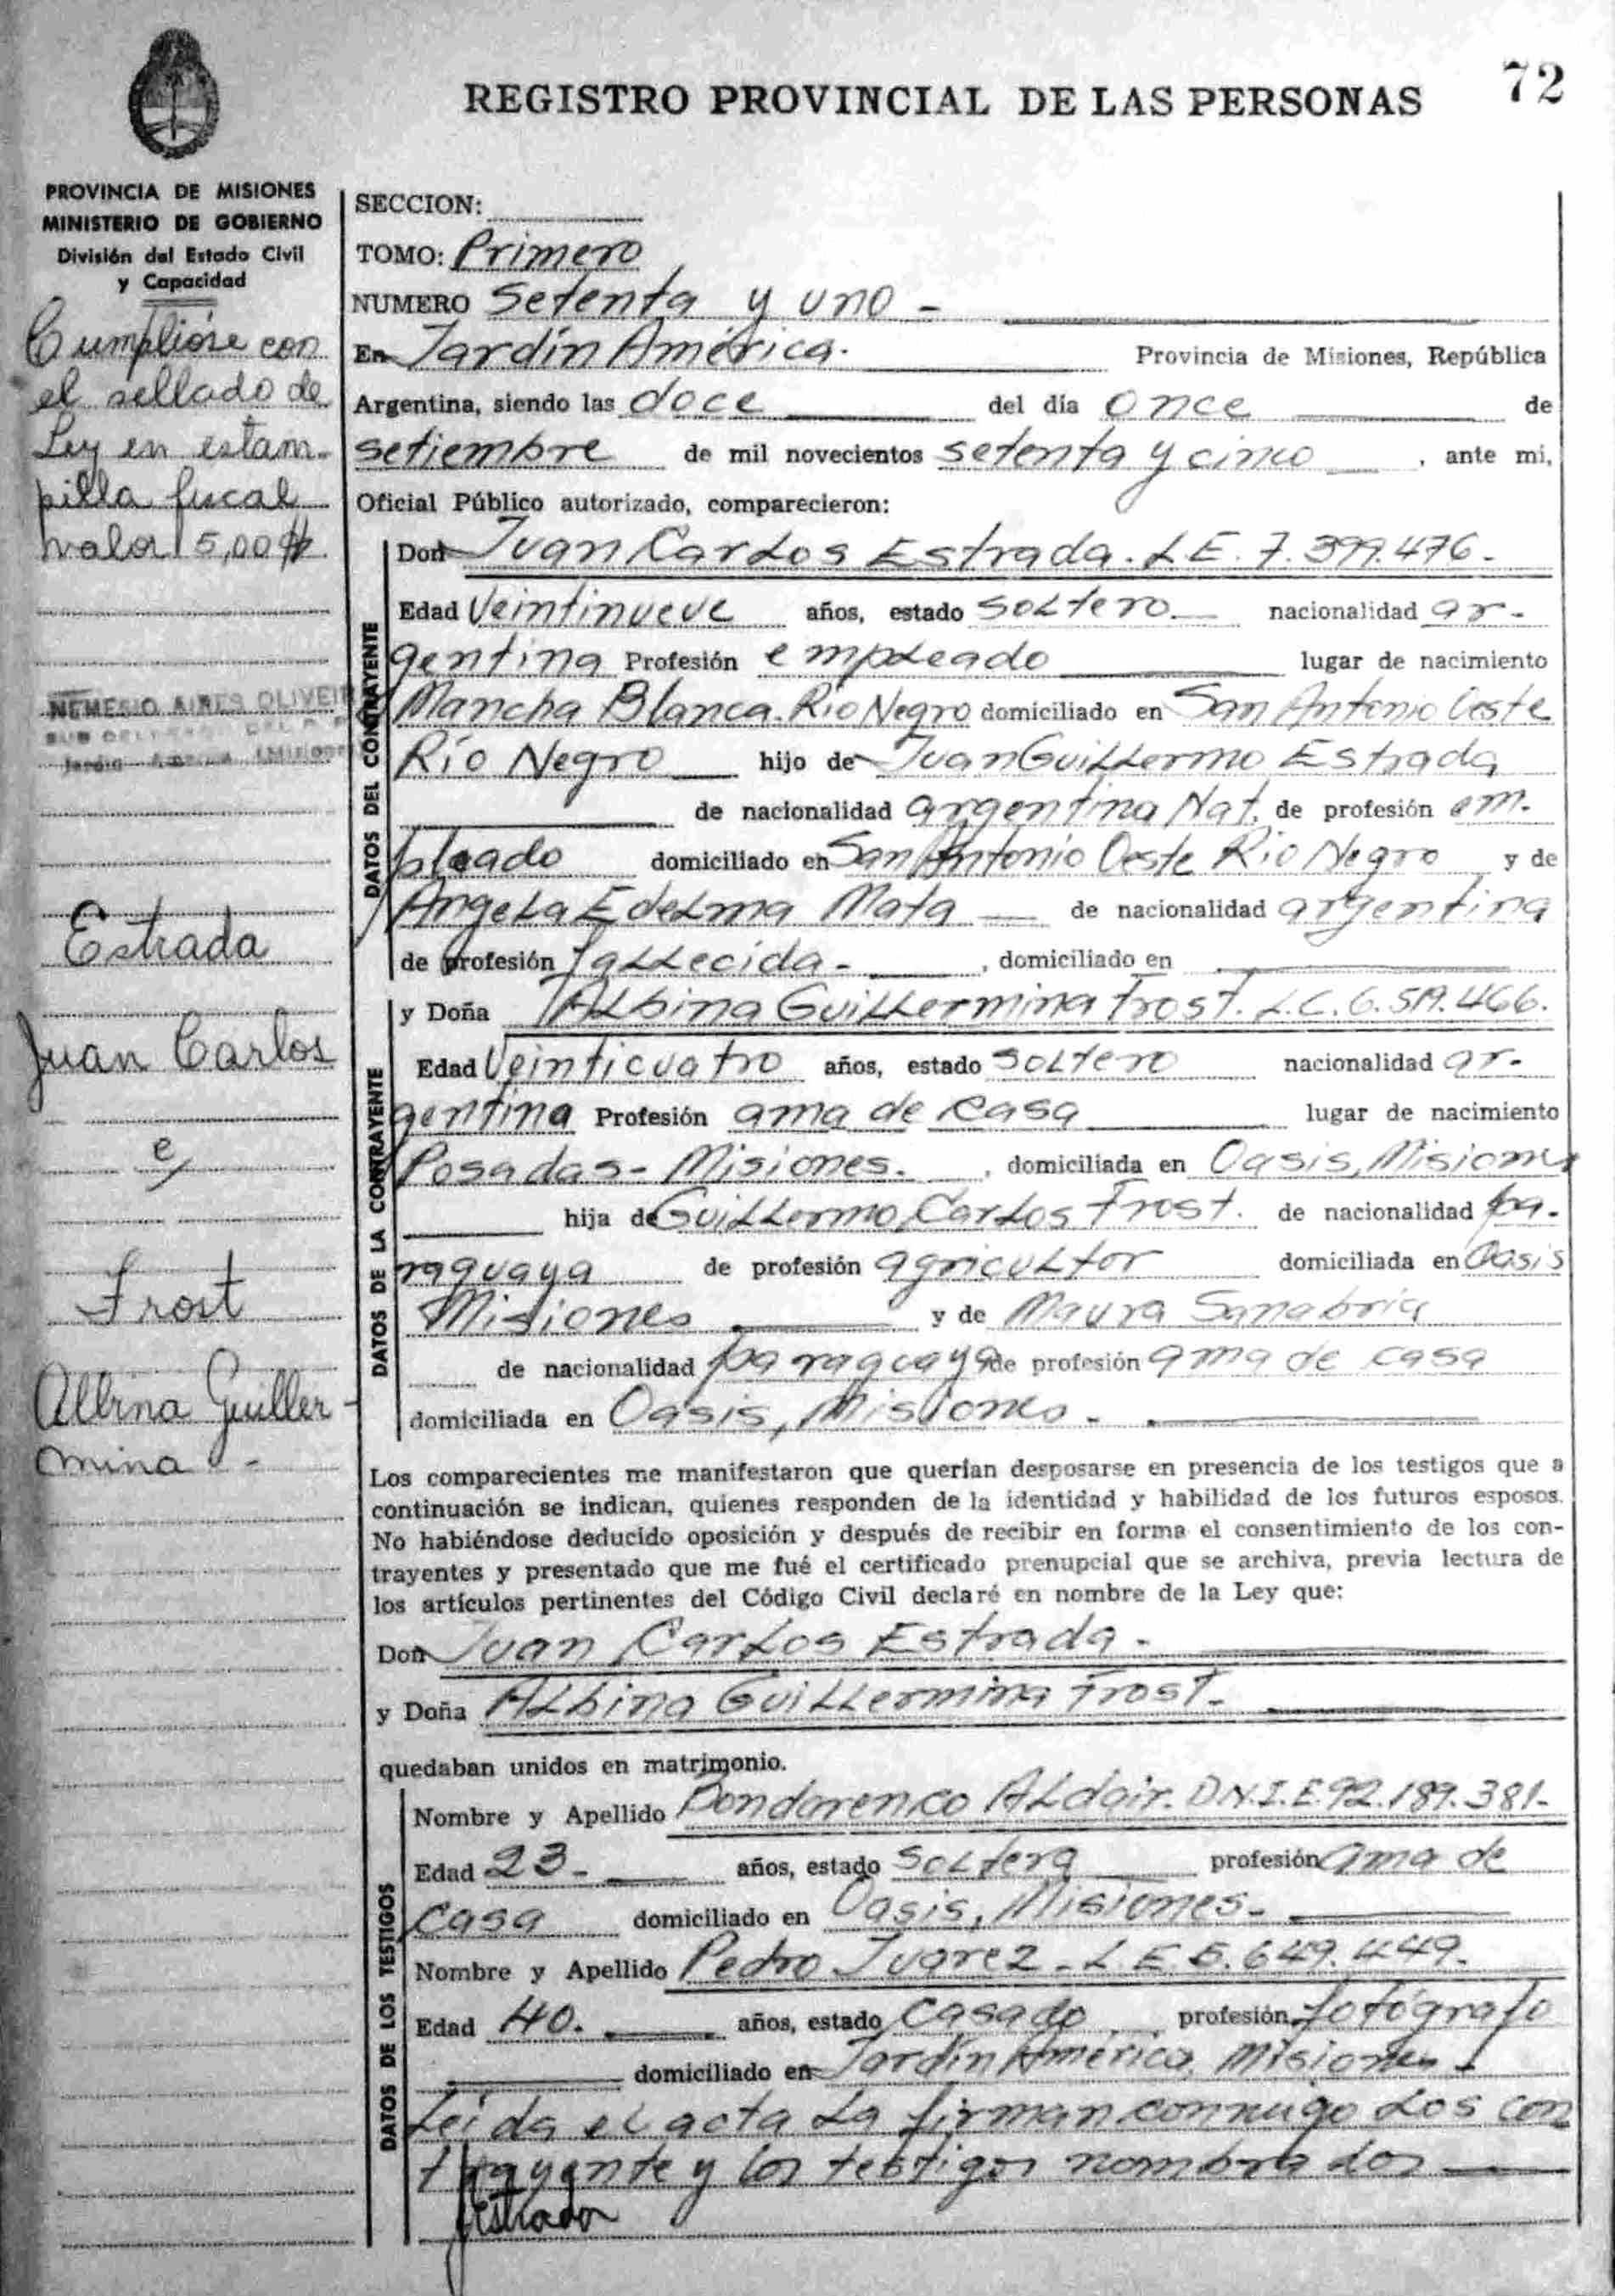 REGISTRO PROVINCIAL DE LAS PERSONAS 72
PROVINCIA DE MISIONES
MINISTERIO DE GOBIERNO
División del Estado Civil
y Capacidad
Cumplióse con
el sellado de
Ley en estam-
pilla fiscal
valor 5,00 $
NEMESIO AIRES OLIVEI
Estrada
Juan Carlos
e/
Frost
Albina Guiller-
mina -
SECCION:
TOMO: Primero
NUMERO Setenta y uno -
En Jardín América. Provincia de Misiones, República
Argentina, siendo las doce del día once de
setiembre de mil novecientos setenta y cinco , ante mi,
Oficial Público autorizado, comparecieron:
DATOS DEL CONTRAYENTE
Don Juan Carlos Estrada. L.E. 7.399.476-
Edad Veintinueve años, estado soltero nacionalidad ar-
gentina Profesión empleado lugar de nacimiento
Mancha Blanca. Río Negro domiciliado en San Antonio Oeste
Río Negro hijo de Juan Guillermo Estrada
de nacionalidad argentina Nat. de profesión em-
pleado domiciliado en San Antonio Oeste Rio Negro y de
Angela Edelma Mata de nacionalidad argentina
de profesión fallecida- , domiciliado en
DATOS DE LA CONTRAYENTE
y Doña Albina Guillermina Frost. L.C. 6.519.466.
Edad Veinticuatro años, estado soltero nacionalidad ar-
gentina Profesión ama de casa lugar de nacimiento
Posadas- Misiones. , domiciliada en Oasis, Misiones
hija de Guillermo Carlos Frost. de nacionalidad pa-
raguaya de profesión agricultor domiciliada en Oasis
Misiones y de Maura Sanabria
de nacionalidad paraguaya de profesión ama de casa
domiciliada en Oasis, Misiones -
Los comparecientes me manifestaron que querían desposarse en presencia de los testigos que a
continuación se indican, quienes responden de la identidad y habilidad de los futuros esposos.
No habiéndose deducido oposición y después de recibir en forma el consentimiento de los con-
trayentes y presentado que me fué el certificado prenupcial que se archiva, previa lectura de
los artículos pertinentes del Código Civil declaré en nombre de la Ley que:
Don Juan Carlos Estrada -
y Doña Albina Guillermina Frost-
quedaban unidos en matrimonio.
DATOS DE LOS TESTIGOS
Nombre y Apellido Bondarenco Aldair. D.N.I.E. 92.189.381-
Edad 23- años, estado soltera profesión ama de
casa domiciliado en Oasis, Misiones-
Nombre y Apellido Pedro Juarez- L.E. 5.649.449-
Edad 40. años, estado casado profesión fotógrafo
domiciliado en Jardín América, Misiones -
Leída el acta la firman conmigo los con
trayente y los testigos nombrados
Estrada